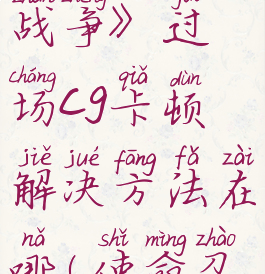 战争》过
cháng qiǎ dùn
场cg卡顿
jiě jué fāng fǎ zài
解决方法在
nǎ shǐ mìng zhào
哪(使命召